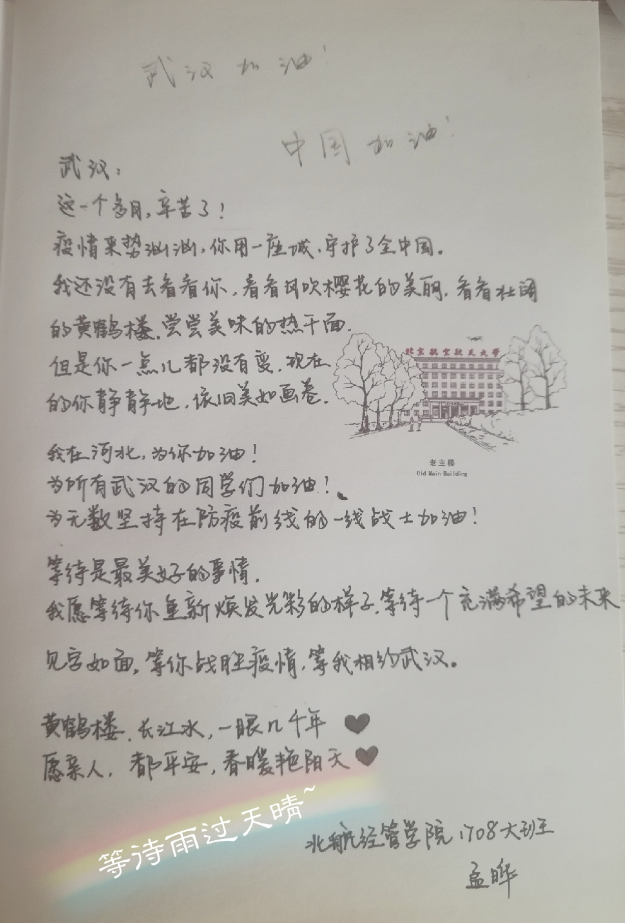 武汉加油！
中国加油！
武汉：
这一个多月，辛苦了！
疫情来势汹汹，你用一座城，守护了全中国。
我还没有去看看你，看看风吹樱花的美丽，看看壮阔
的黄鹤楼，尝尝美味的热干面。
但是你一点儿都没有变，现在
的你静静地，依旧美如画卷。
北京航空航天大学
老主楼
Old Main Building
我在河北，为你加油！
为所有武汉的同学们加油！
为无数坚持在防疫前线的一线战士加油！
等待是最美好的事情，
我愿等待你重新焕发光彩的样子，等待一个充满希望的未来
见字如面，等你战胜疫情，等我相约武汉。
黄鹤楼，长江水，一眼几千年♥
愿亲人，都平安，春暖艳阳天♥
等待雨过天晴~
北航经管学院1708大班
孟晔